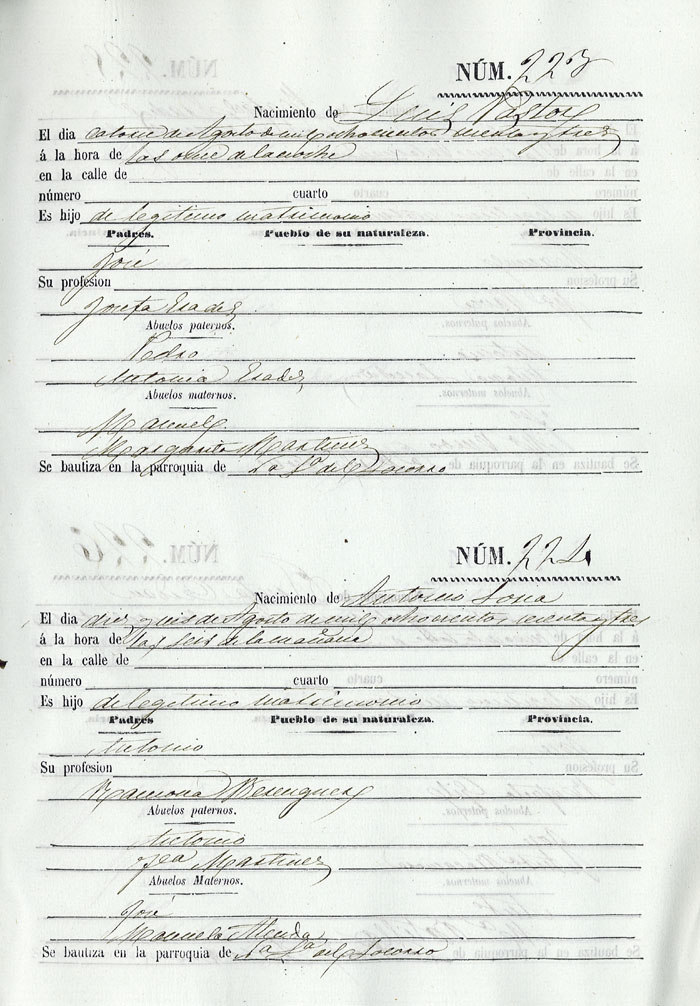 NÚM. 223
Nacimiento de Luis Pastor
El dia catorce de Agosto de mil ochocientos setenta y tres
á la hora de las once de la noche
en la calle de
número cuarto
Es hijo de legitimo matrimonio
Padres. Pueblo de su naturaleza. Provincia.
José
Su profesion
Josefa
Abuelos paternos.
Pedro
Antonia
Abuelos maternos.
Manuel
Margarita Martinez
Se bautiza en la parroquia de La Sª del Socorro
NÚM. 224
Nacimiento de Antonio Soria
El dia diez y seis de Agosto de mil ochocientos setenta y tres
á la hora de las seis de la mañana
en la calle de
número cuarto
Es hijo de legitimo matrimonio
Padres Pueblo de su naturaleza. Provincia.
Antonio
Su profesion
Ramona Berenguer
Abuelos paternos.
Antonio
Martinez
Abuelos Maternos.
José
Manuela
Se bautiza en la parroquia de La Sª del Socorro